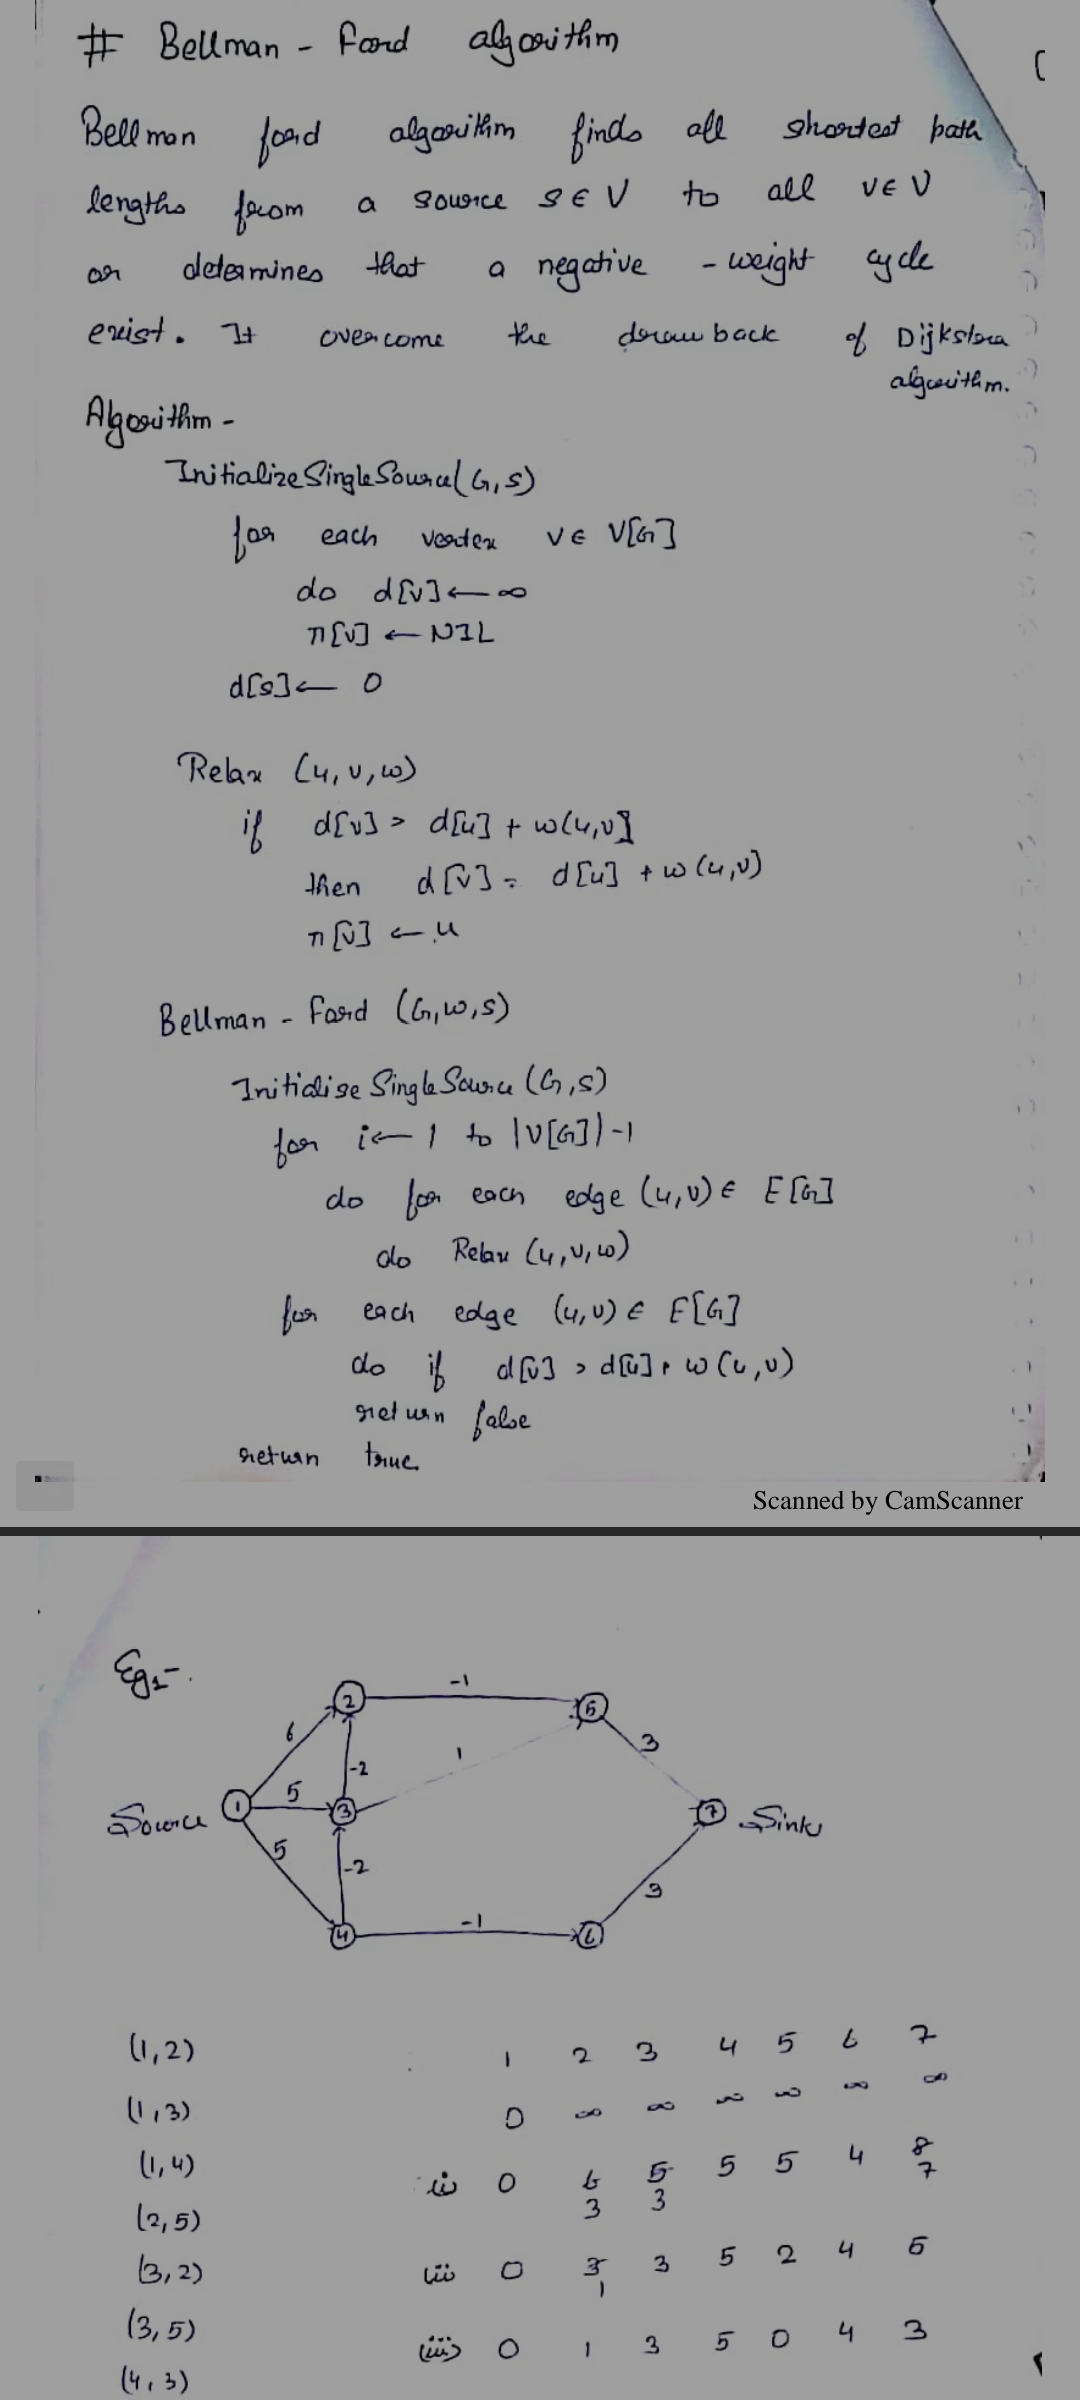 # Bellman - Ford algorithm
Bellman ford algorithm finds all shortest path
lengths from a source S ∈ V to all v ∈ V
or determines that a negative - weight cycle
exist. It overcome the drawback of Dijkstra
algorithm.
Algorithm -
InitializeSingleSource(G,S)
for each vertex v ∈ V[G]
do d[v] ← ∞
π[v] ← NIL
d[s] ← 0
Relax (u, v, w)
if d[v] > d[u] + w(u,v]
then d[v] = d[u] + w(u,v)
π[v] ← u
Bellman - Ford (G,w,s)
Initialise SingleSource (G,S)
for i ← 1 to |V[G]|-1
do for each edge (u,v) ∈ E[G]
do Relax (u,v,w)
for each edge (u,v) ∈ E[G]
do if d[v] > d[u] + w(u,v)
return false
return true
Scanned by CamScanner
Eg1-
2 -1 5
6 -2 1 3
Source 1 5 3 7 Sink
5 -2 3
4 -1 6
(1,2) 1 2 3 4 5 6 7
(1,3) 0 ∞ ∞ ∞ ∞ ∞ ∞
(1,4) i) 0 6 5 5 5 4 8
3 3 7
(2,5)
(3,2) ii) 0 3 3 5 2 4 5
1
(3,5) iii) 0 1 3 5 0 4 3
(4,3)